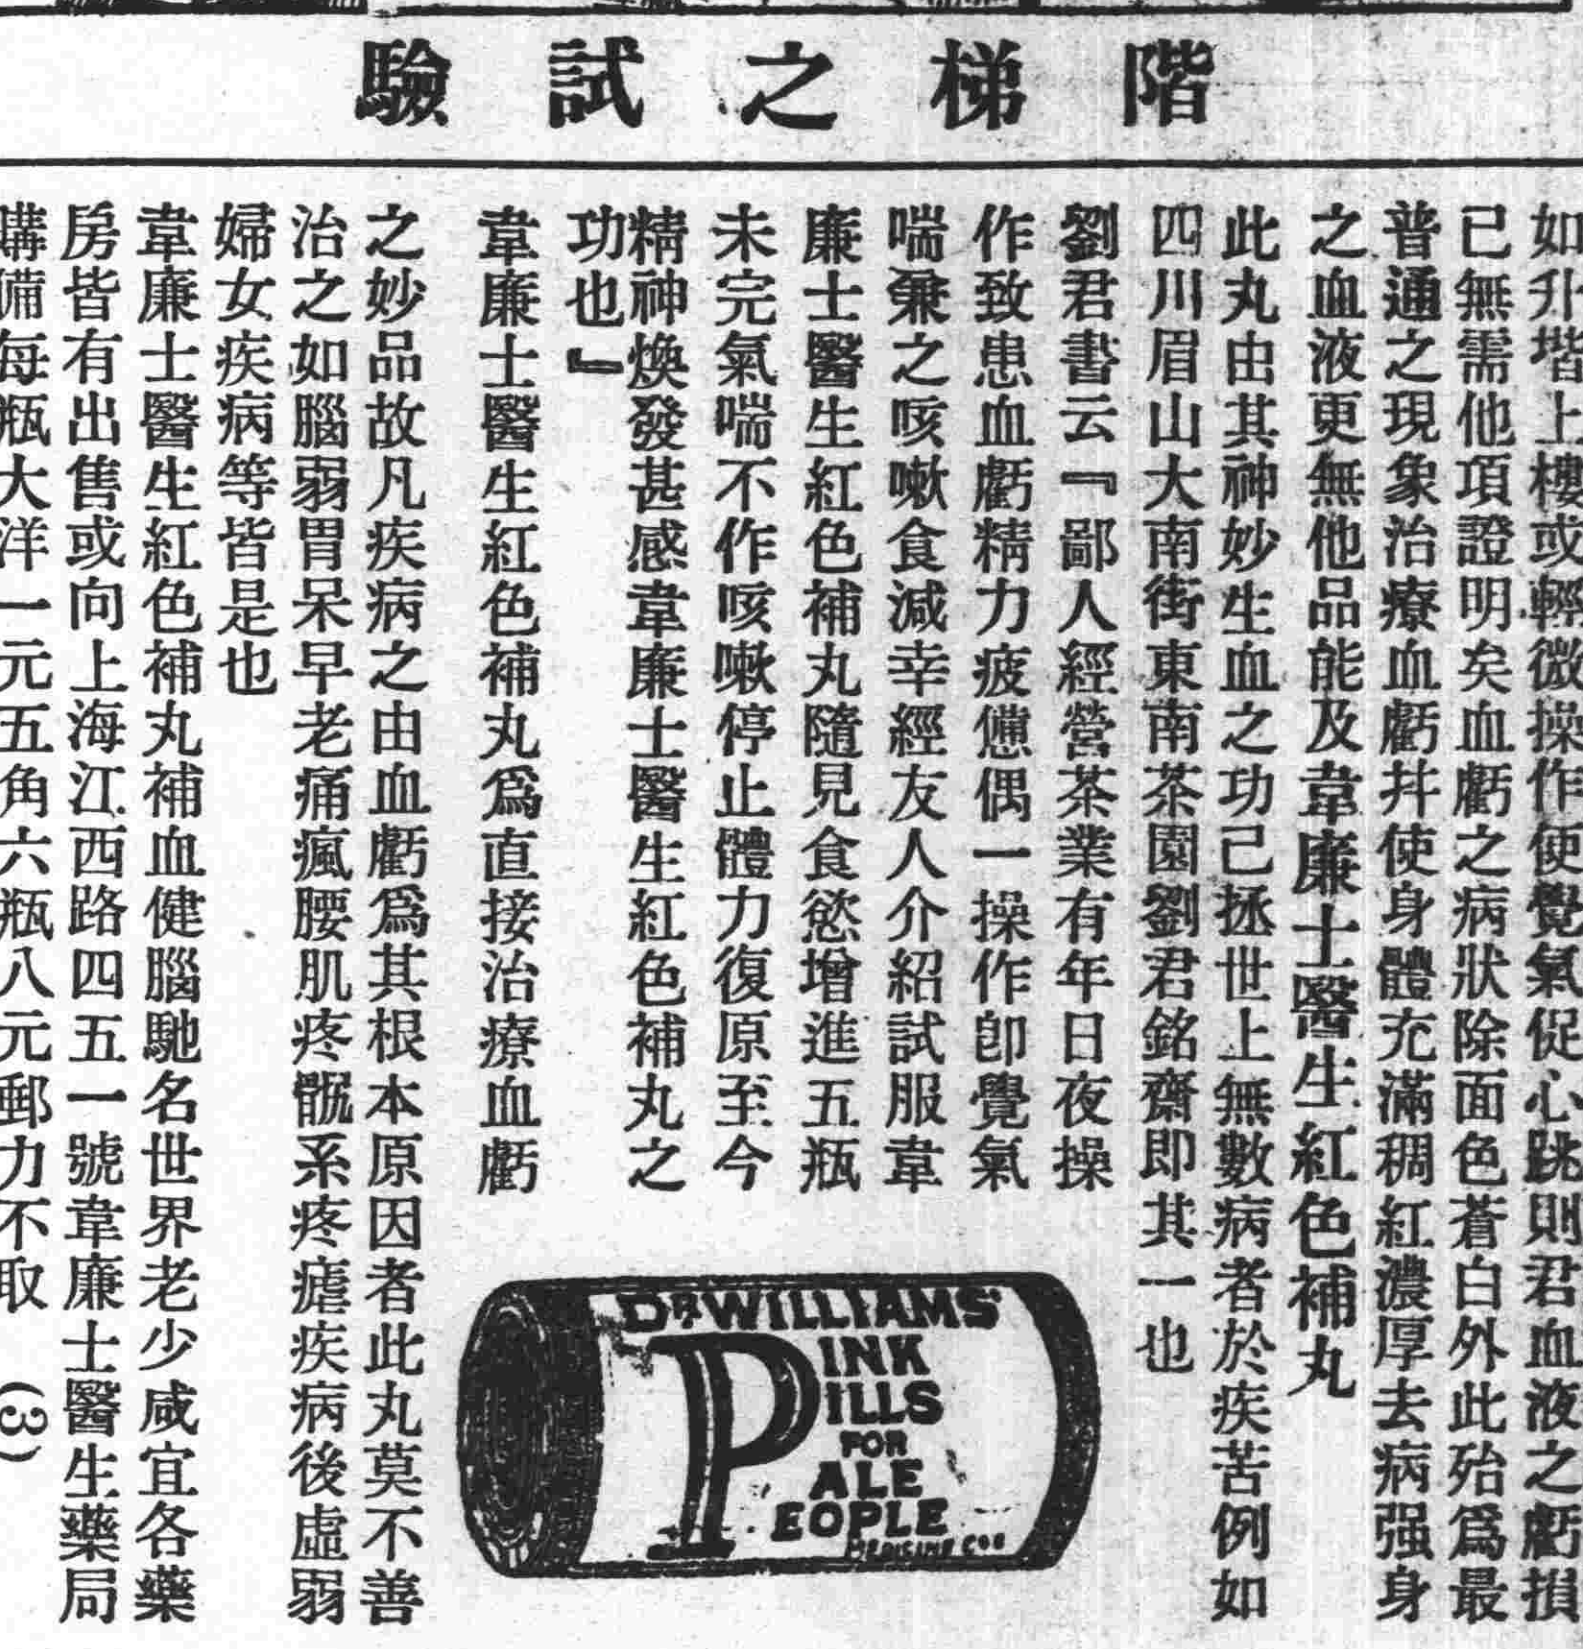 階梯之試驗
如升堦上樓或輕微操作便覺氣促心跳則君血液之虧損
已無需他項證明矣血虧之病狀除面色蒼白外此殆爲最
普通之現象治療血虧幷使身體充滿稠紅濃厚去病强身
之血液更無他品能及韋廉士醫生紅色補丸
此丸由其神妙生血之功己拯世上無數病者於疾苦例如
四川眉山大南街東南茶園劉君銘齋即其一也
劉君書云『鄙人經營茶業有年日夜操
作致患血虧精力疲憊偶一操作卽覺氣
喘兼之咳嗽食減幸經友人介紹試服韋
廉士醫生紅色補丸隨見食慾增進五瓶
未完氣喘不作咳嗽停止體力復原至今
精神煥發甚感韋廉士醫生紅色補丸之
功也』
韋廉士醫生紅色補丸爲直接治療血虧
之妙品故凡疾病之由血虧爲其根本原因者此丸莫不善
治之如腦弱胃呆早老痛瘋腰肌疼髖系疼瘧疾病後虛弱
婦女疾病等皆是也
韋廉士醫生紅色補丸補血健腦馳名世界老少咸宜各藥
房皆有出售或向上海江西路四五一號韋廉士醫生藥局
購備每瓶大洋一元五角六瓶八元郵力不取 (3)
DR WILLIAMS'
PINK
PILLS
FOR
PALE
PEOPLE
MEDICINE CO